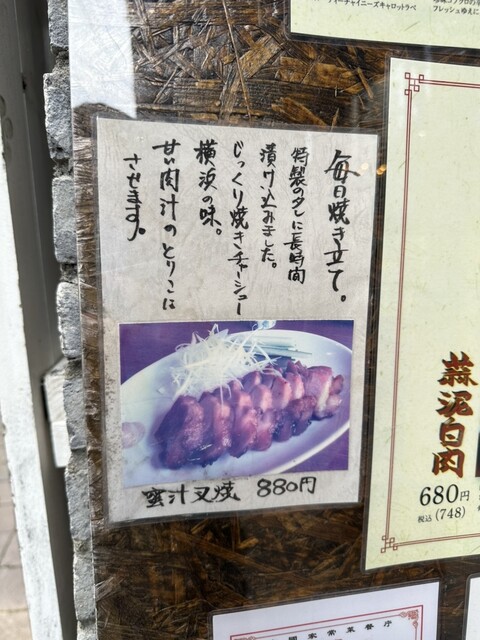 毎日焼き立て。
特製のタレに長時間
漬け込みました。
じっくり焼きチャーシュー
横浜の味。
甘い肉汁のとりこに
させます。
蜜汁叉焼 880円
蒜泥白肉
680円
税込(748)
ティーチャイニーズキャロットラペ
フレッシュゆえに
国家常菜餐庁